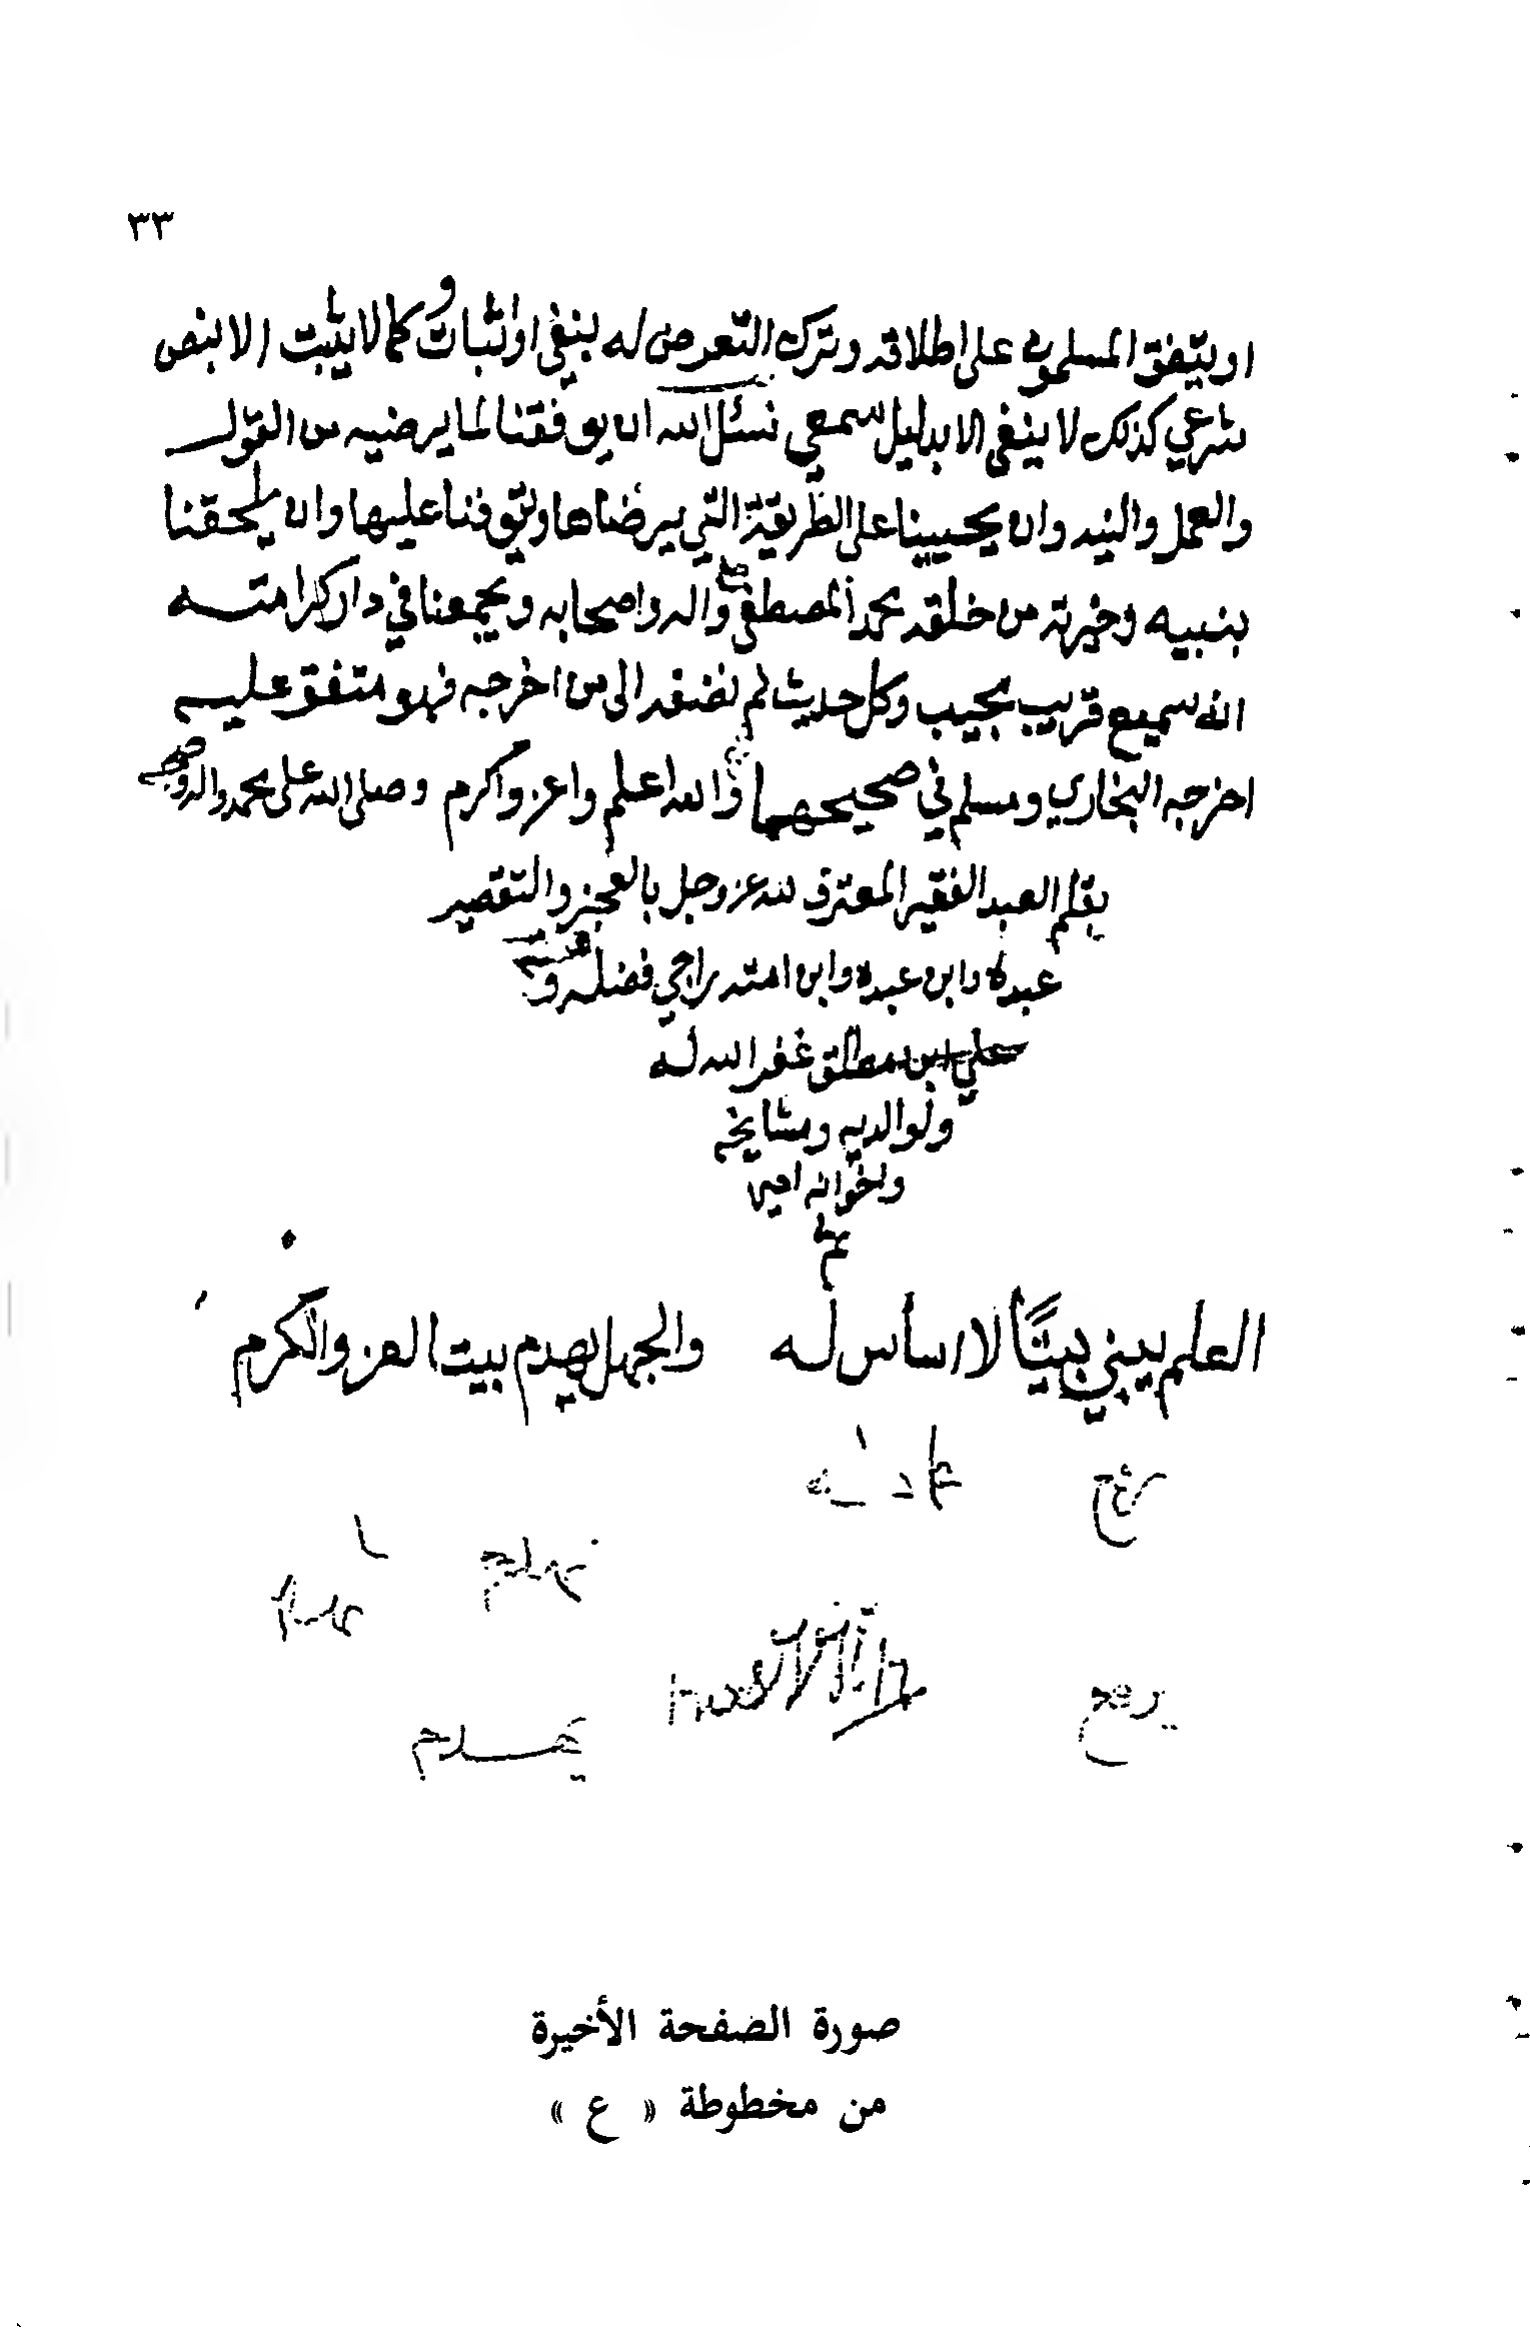 ٣٣
او يتفق المسلمون على اطلاقه وترك التعرض له بنفي او اثبات وكما لا يثبت الا بنص
شرعي كذلك لا ينفى الا بدليل سمعي نسئل الله ان يوفقنا لما يرضيه من القول
والعمل والنيه وان يحيينا على الطريقة التي يرضاها ويتوفنا عليها وان يلحقنا
بنبيه وخيرته من خلقه محمد المصطفى واله واصحابه ويجمعنا في دار كرامته
انه سميع قريب مجيب وكل حديث لم نضفه الى من اخرجه فهو متفق عليه
اخرجه البخاري ومسلم في صحيحهما والله اعلم واعز واكرم وصلى الله على محمد واله وصحبه
بقلم العبد الفقير المعترف لله عز وجل بالعجز والتقصير
عبده وابن عبده وابن امته راجي فضله و
علي ابن مطلق غفر الله له
ولوالديه ومشايخه
ولاخوانه امين
تم
العلم يبني بيتًا لا اساس له والجهل يهدم بيت العز والكرم
يرفع
يهدم
صورة الصفحة الأخيرة
من مخطوطة « ع »